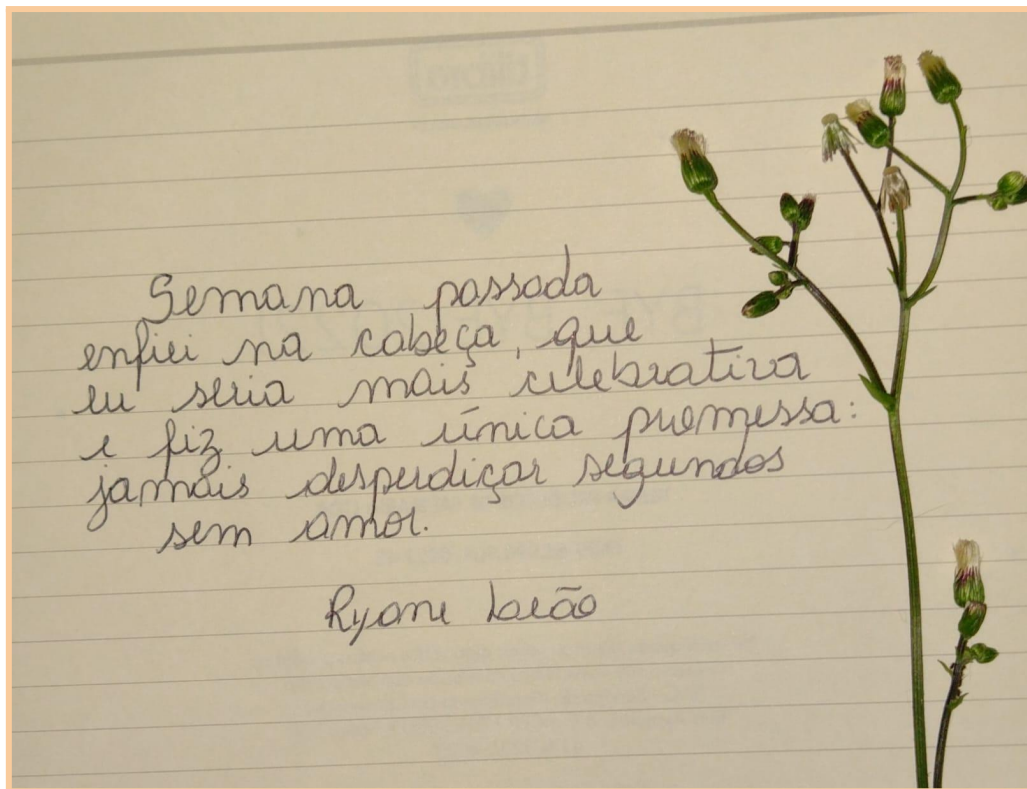 Semana passada
enfiei na cabeça, que
eu seria mais celebrativa
e fiz uma única promessa:
jamais desperdiçar segundos
sem amor.
Ryane Leão